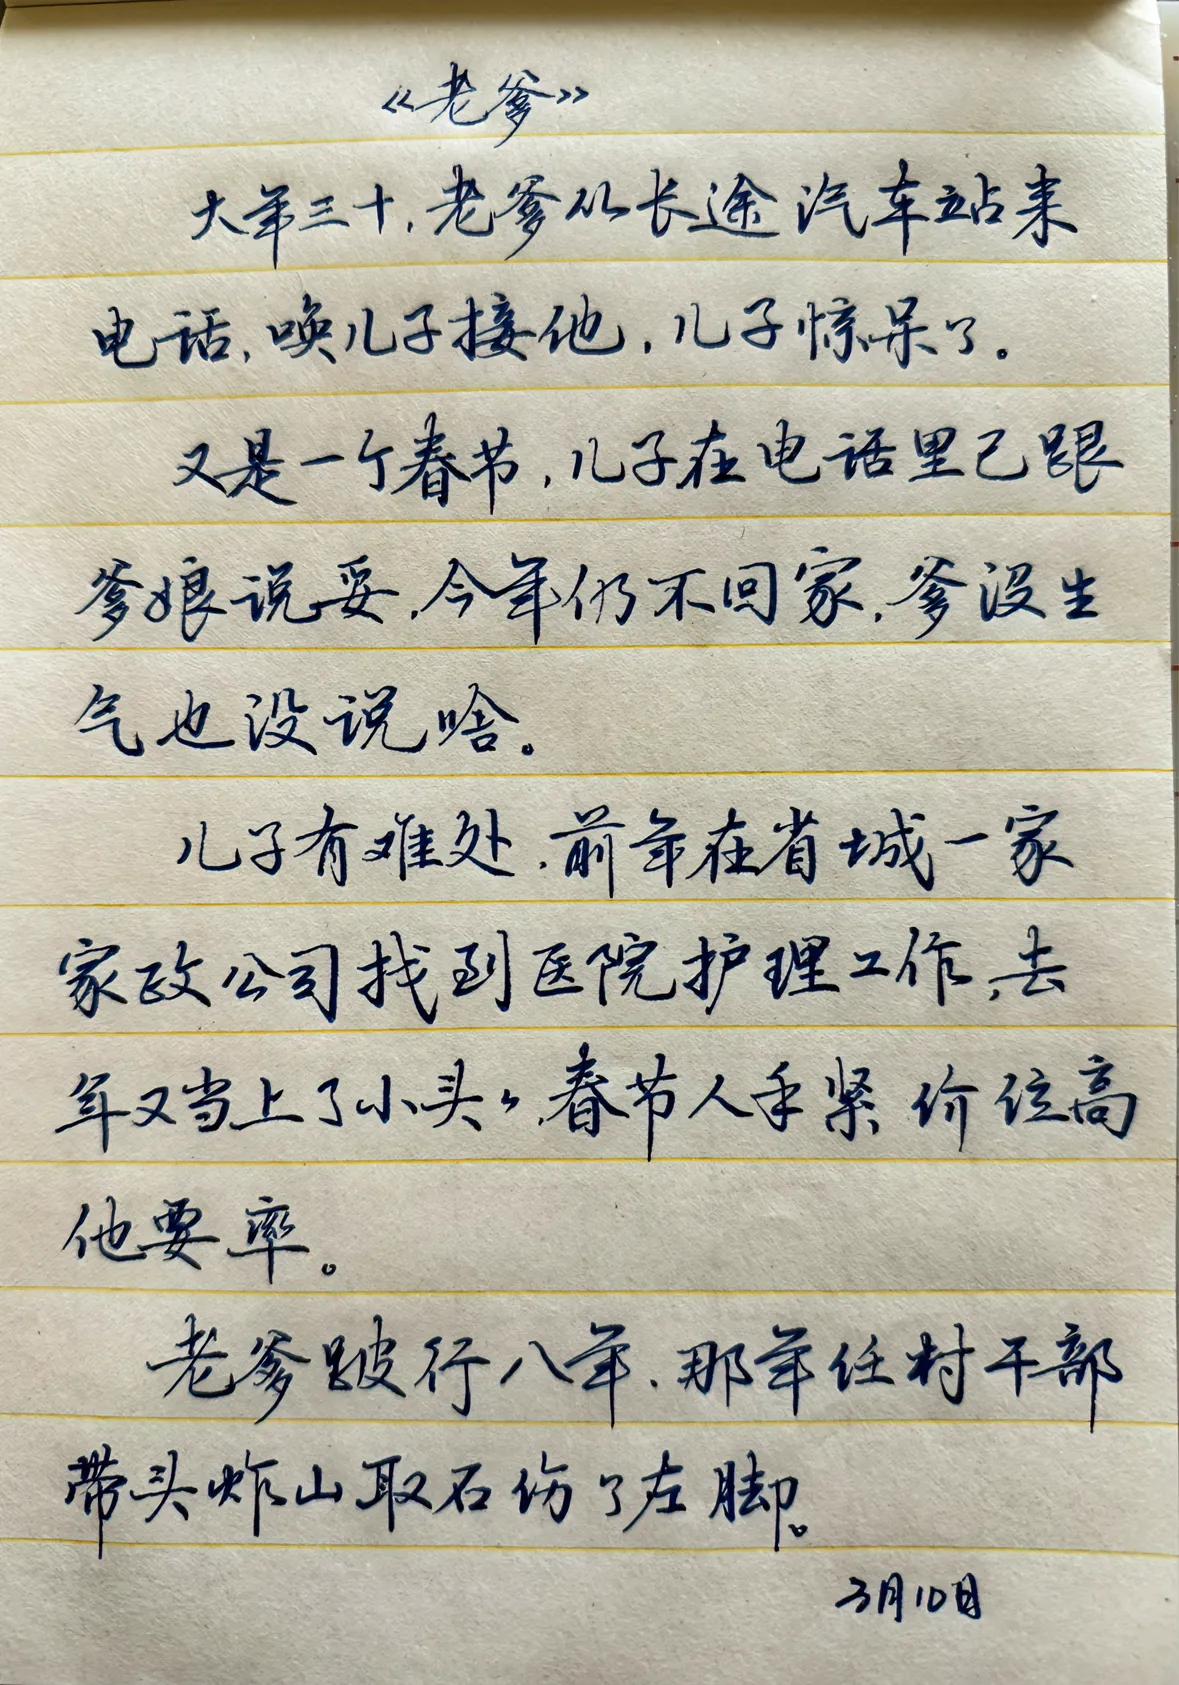 《老爹》
大年三十，老爹从长途汽车站来
电话，唤儿子接他，儿子惊呆了。
又是一个春节，儿子在电话里已跟
爹娘说妥，今年仍不回家，爹没生
气也没说啥。
儿子有难处，前年在省城一家
家政公司找到医院护理工作，去
年又当上了小头头，春节人手紧价位高
他要率。
老爹跛行八年，那年任村干部
带头炸山取石伤了左脚。
3月10日